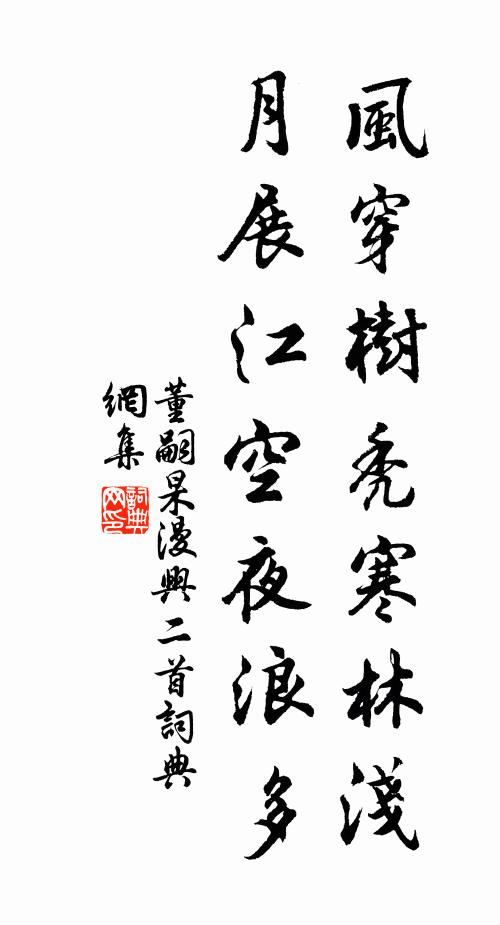 風穿樹禿寒林淺
月展江空夜浪多
董嗣杲漫興二首詞典
網集
詞典網印